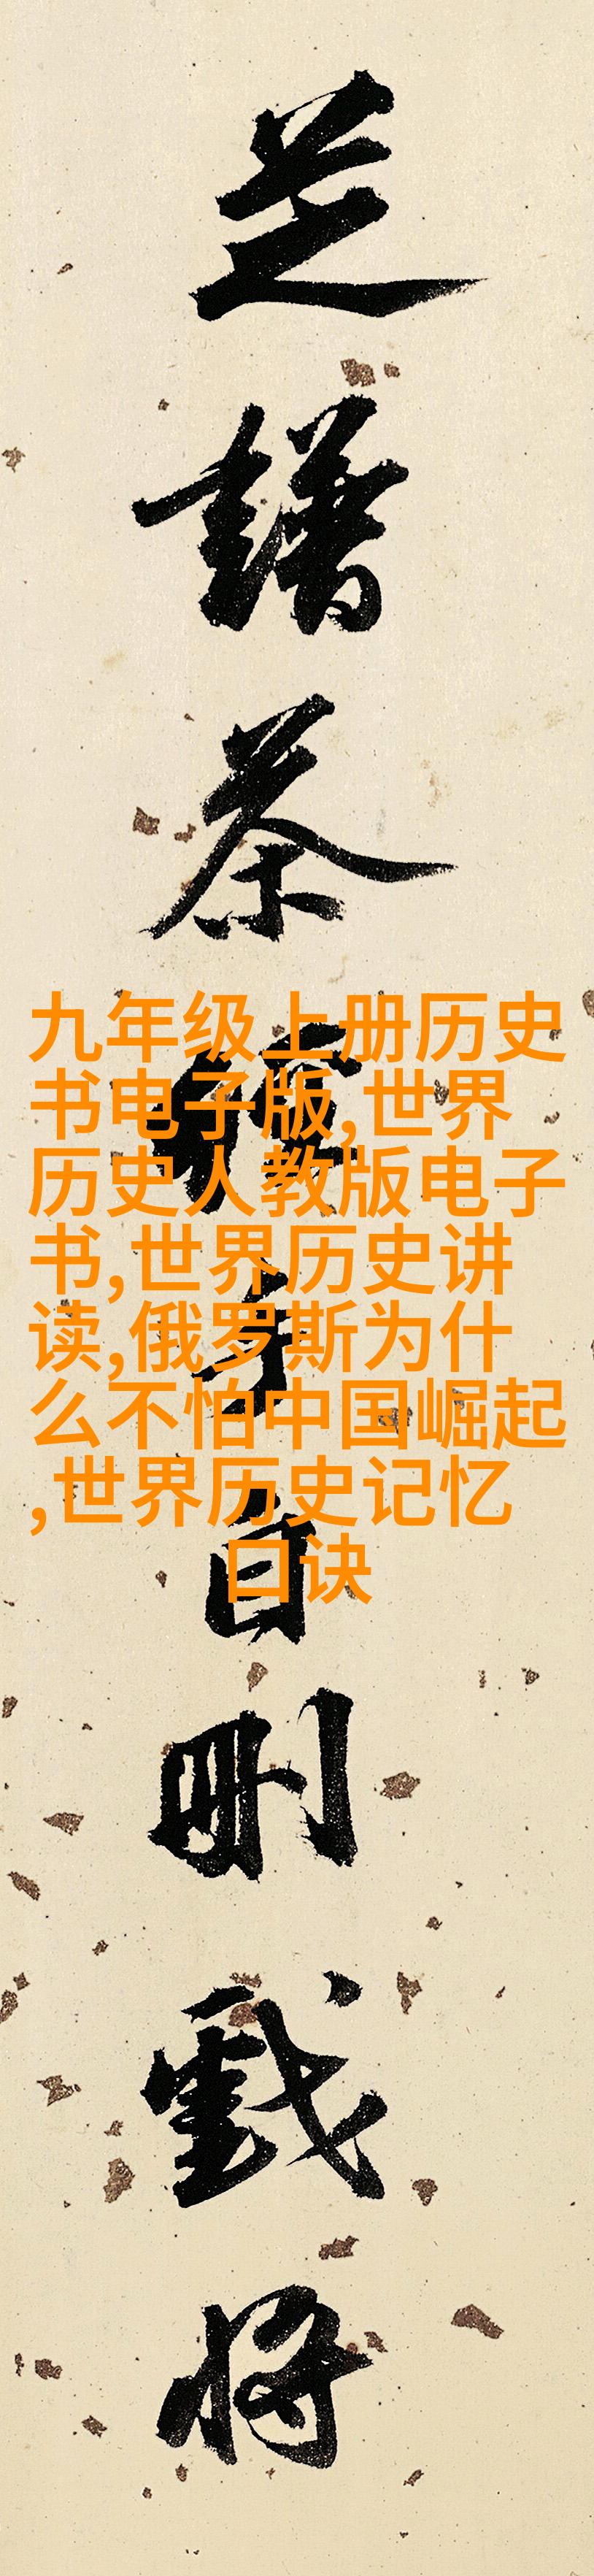 芝譜茶經手自刪戲將
九年级上册历史
书电子版,世界
历史人教版电子
书,世界历史讲
读,俄罗斯为什
么不怕中国崛起
,世界历史记忆
口诀